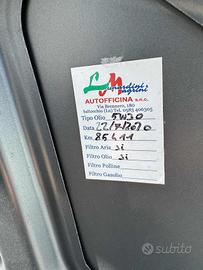 Lunardini
Magrini
AUTOFFICINA s.n.c.
Via Brennero, 180
Saltocchio (Lu) Tel. 0583 406305
Tipo Olio 5W30
Data 22/7/2020
Km. 85411
Filtro Aria si
Filtro Olio si
Filtro Polline
Filtro Gasolio
subito